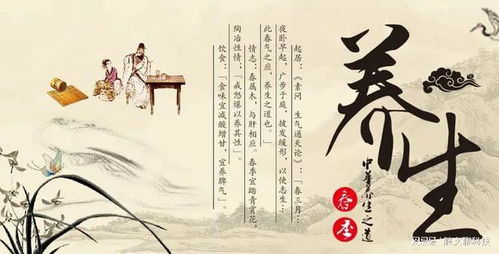 养生
中华养生之道
春季
起居：《素问　生气通天论》：「春三月…
夜卧早起，广步于庭，披发缓形，以使志生…
此春气之应，养生之道也。」
情志：春属木，与肝相应。春季宜踏青赏花，
陶冶性情，「戒怒暴以养其性」。
饮食：「食味宜减酸增甘，宜养脾气」。